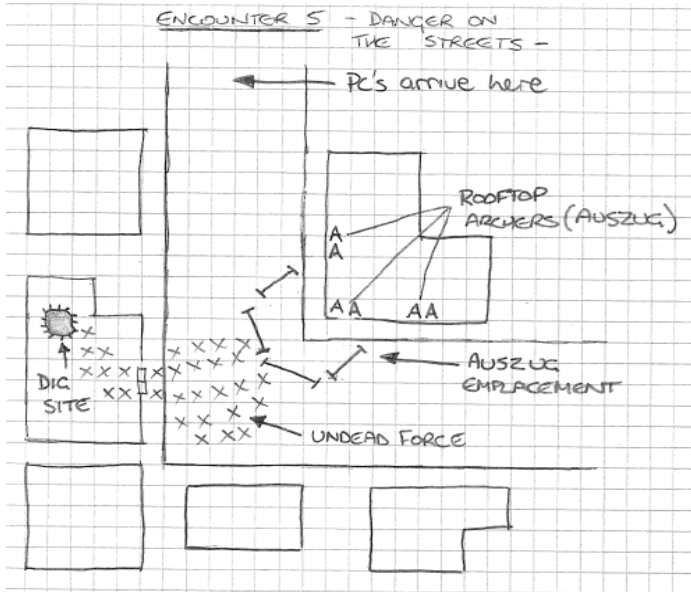 ENCOUNTER 5 - DANGER ON
THE STREETS -
PC's arrive here
ROOFTOP
ARCHERS (AUSZUG)
A
A
AA
AA
DIG
SITE
AUSZUG
EMPLACEMENT
UNDEAD FORCE